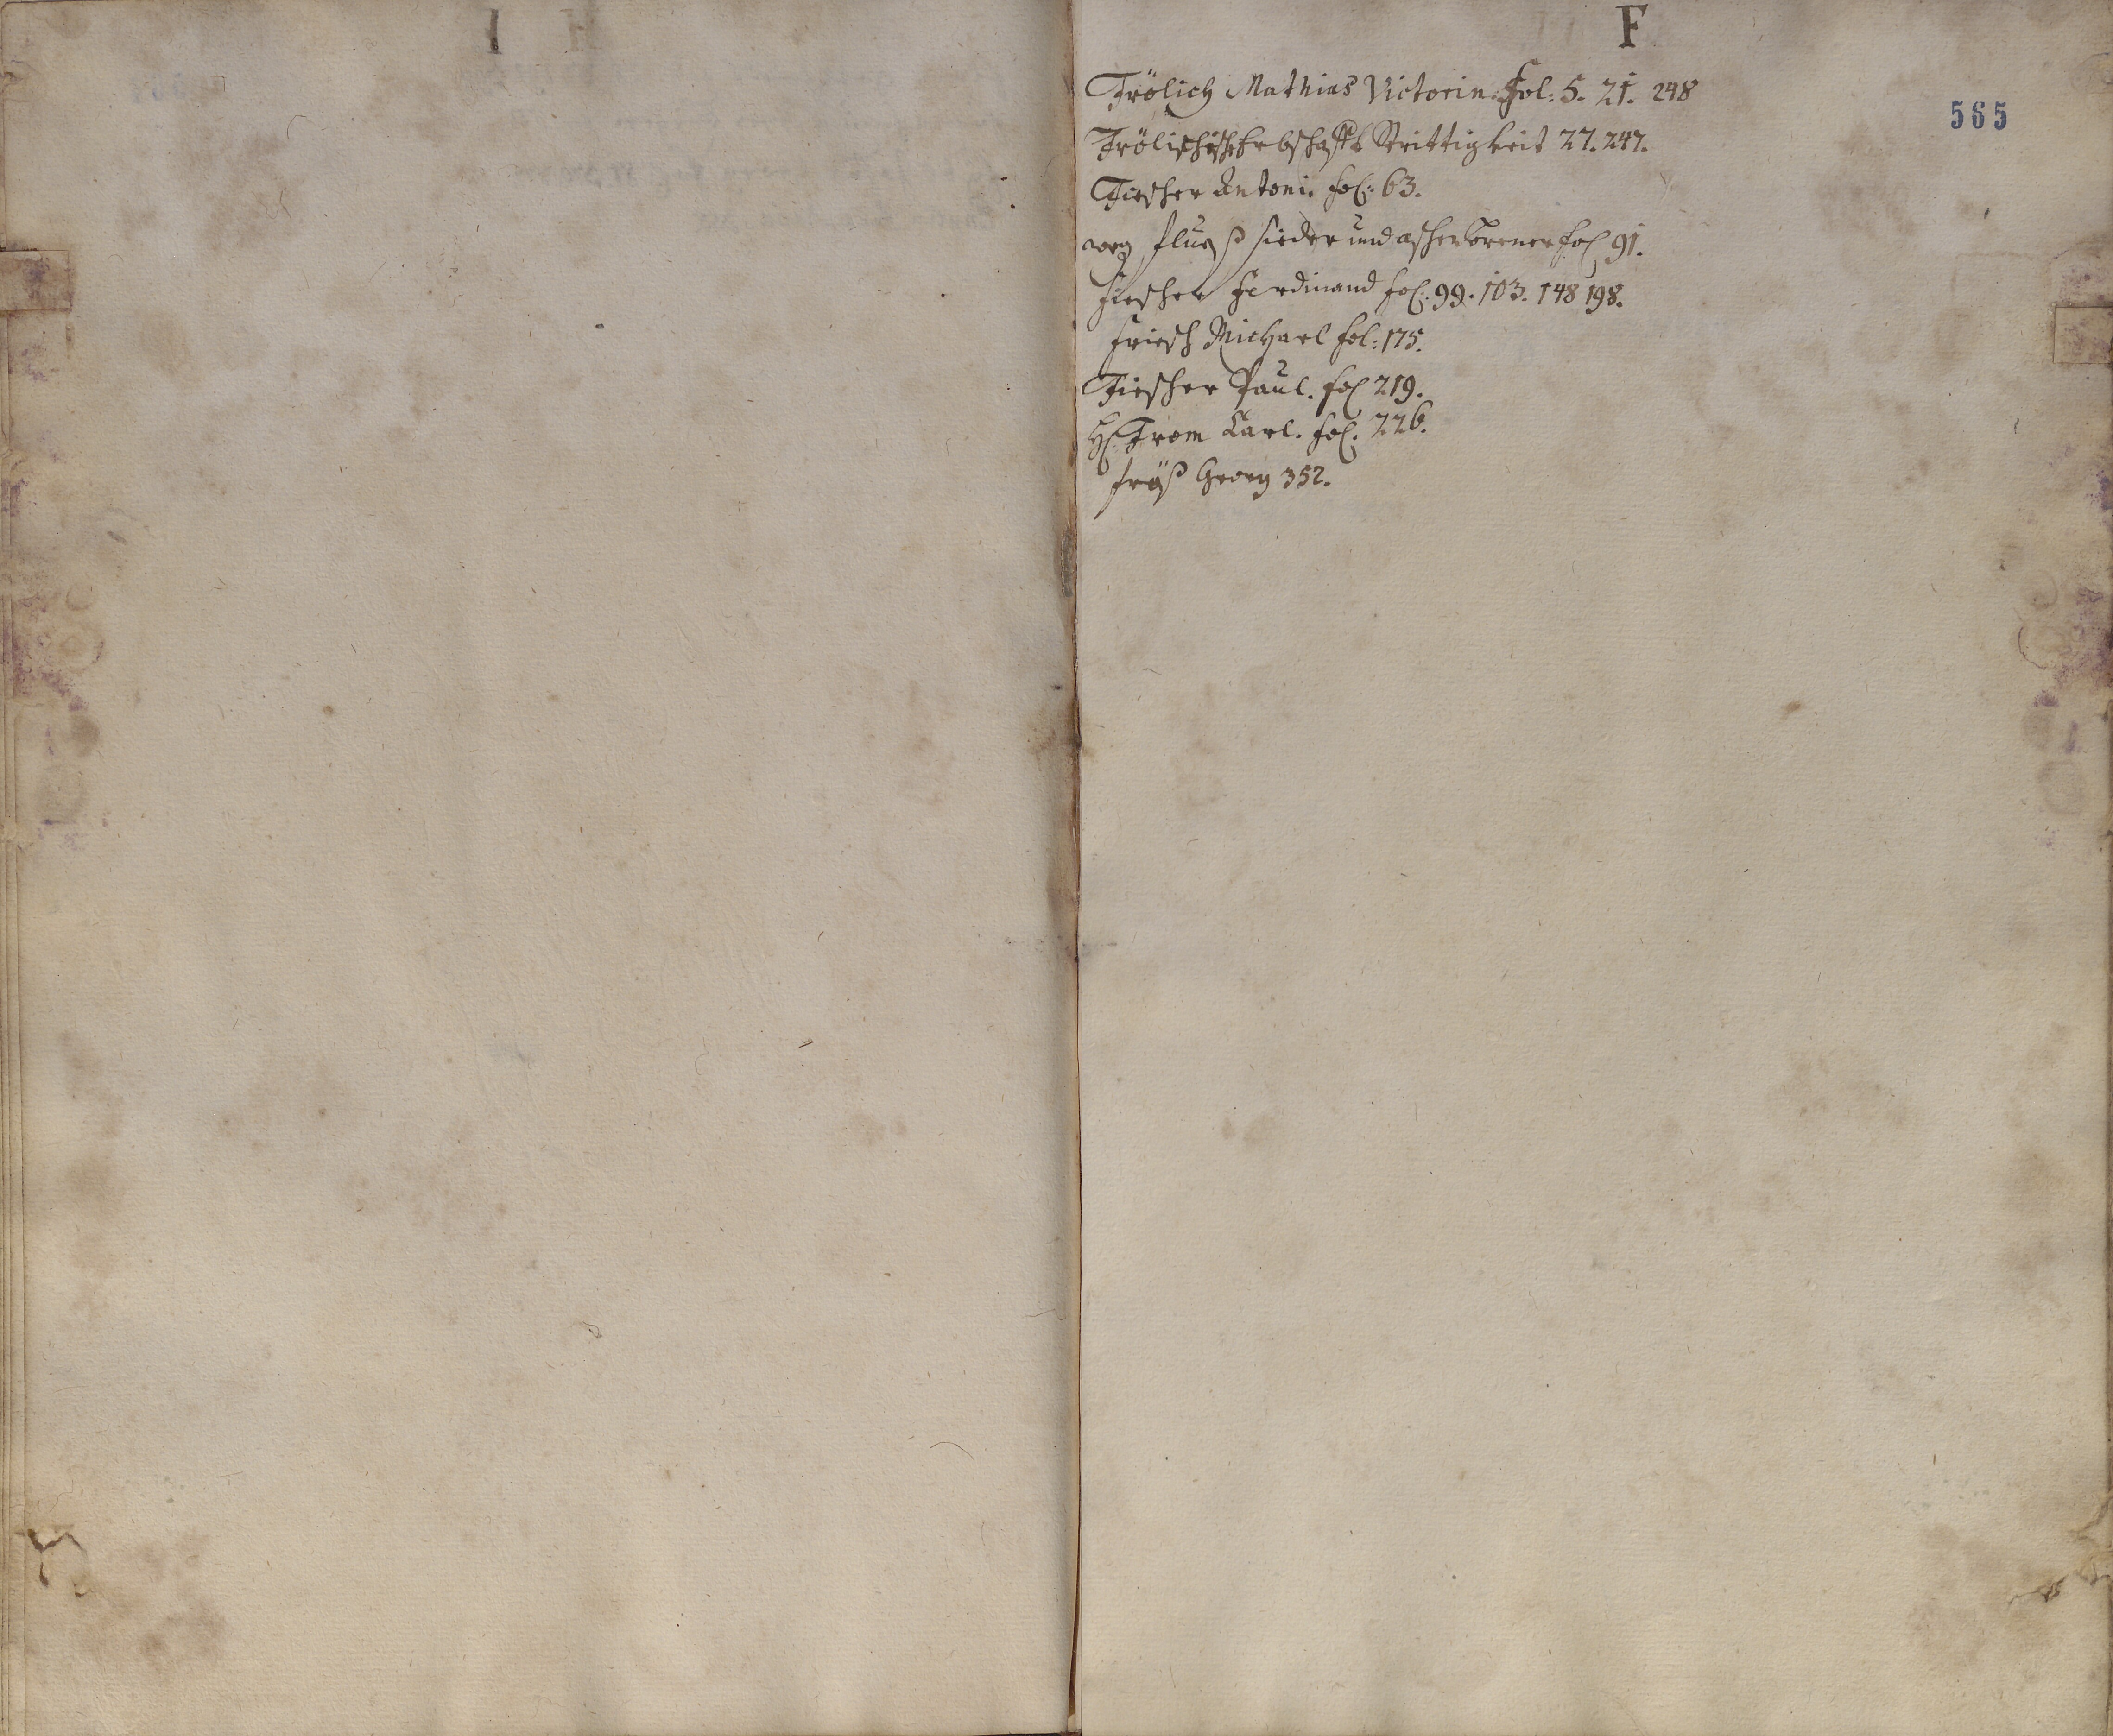 F
565
Frölich Mathias Victorin. Fol: 5. 21. 248
Frölichische Erbschafft Strittigkeit 27. 247.
Fiescher Antoni. fol: 63.
weg fluß sieder und aschenbrener fol 91.
Fiescher Ferdinand fol: 99. 103. 148 198.
Friesch Michael fol: 175.
Fiescher Paul. fol 219.
H: From Carl. fol. 226.
Georg 352.